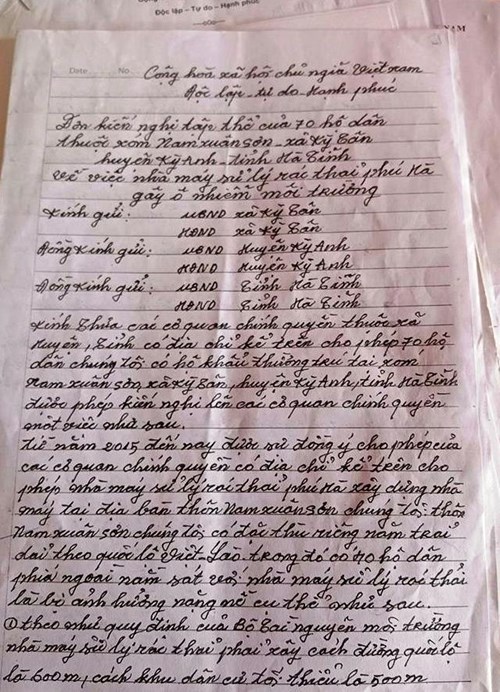 Độc lập – Tự do – Hạnh phúc
NAM
Date No
Cộng hoà xã hội chủ nghĩa Việt nam
Độc lập - tự do - Hạnh phúc
Đơn kiến nghị tập thể của 70 hộ dân
thuộc xóm Nam xuân sơn - xã Kỳ Tân
huyện Kỳ Anh - tỉnh Hà Tĩnh
Về việc nhà máy sử lý rác thải phú Hà
gây ô nhiễm môi trường
Kính gửi: UBND xã Kỳ Tân
HĐND xã Kỳ Tân
Đồng kính gửi: UBND Huyện Kỳ Anh
HĐND Huyện Kỳ Anh
Đồng kính gửi: UBND Tỉnh Hà Tĩnh
HĐND Tỉnh Hà Tĩnh
Kính thưa các cơ quan chính quyền thuộc xã
Huyện, Tỉnh có địa chỉ kể trên cho phép 70 hộ
dân chúng tôi có hộ khẩu thường trú tại xóm
Nam xuân sơn, xã Kỳ Tân, huyện Kỳ Anh, tỉnh Hà Tĩnh
được phép kiến nghị lên các cơ quan chính quyền
một việc như sau.
từ năm 2015 đến nay được sự đồng ý cho phép của
các cơ quan chính quyền có địa chỉ kể trên cho
phép nhà máy sử lý rác thải phú Hà xây dựng nhà
máy tại địa bàn thôn Nam xuân sơn chúng tôi. thôn
Nam xuân sơn chúng tôi có đặc thù riêng nằm trải
dài theo quốc lộ Việt Lào trong đó có 70 hộ dân
phía ngoài nằm sát với nhà máy sử lý rác thải
là bị ảnh hưởng nặng nề cụ thể như sau.
① theo như quy định của Bộ Tài nguyên môi trường
nhà máy sử lý rác thải phải xây cách đường quốc lộ
là 600m, cách khu dân cư tối thiểu là 500m